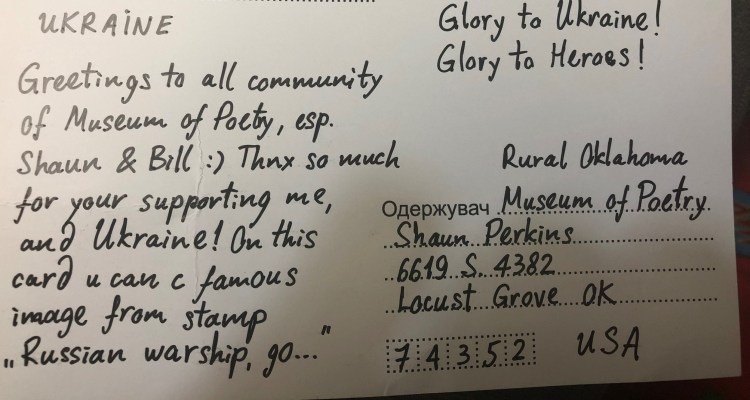 UKRAINE
Greetings to all community
of Museum of Poetry, esp.
Shaun & Bill :) Thnx so much
for your supporting me,
and Ukraine! On this
card u can c famous
image from stamp
„Russian warship, go..."
Glory to Ukraine!
Glory to Heroes!
Rural Oklahoma
Одержувач Museum of Poetry
Shaun Perkins
6619 S. 4382
Locust Grove OK
74352 USA